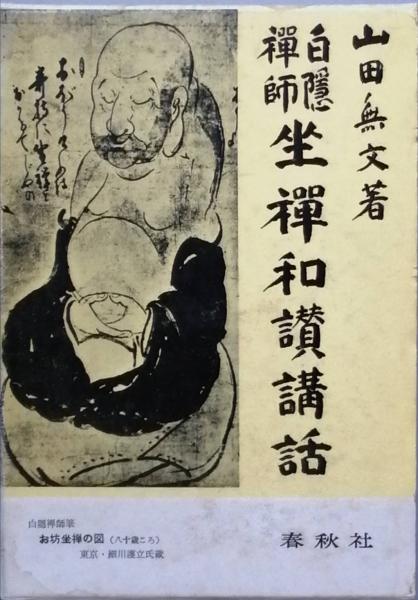 山田無文著
白隠禅師
坐禅和讃講話
白隠禅師筆
お坊坐禅の図（八十歳ころ）
東京・細川護立氏蔵
春秋社